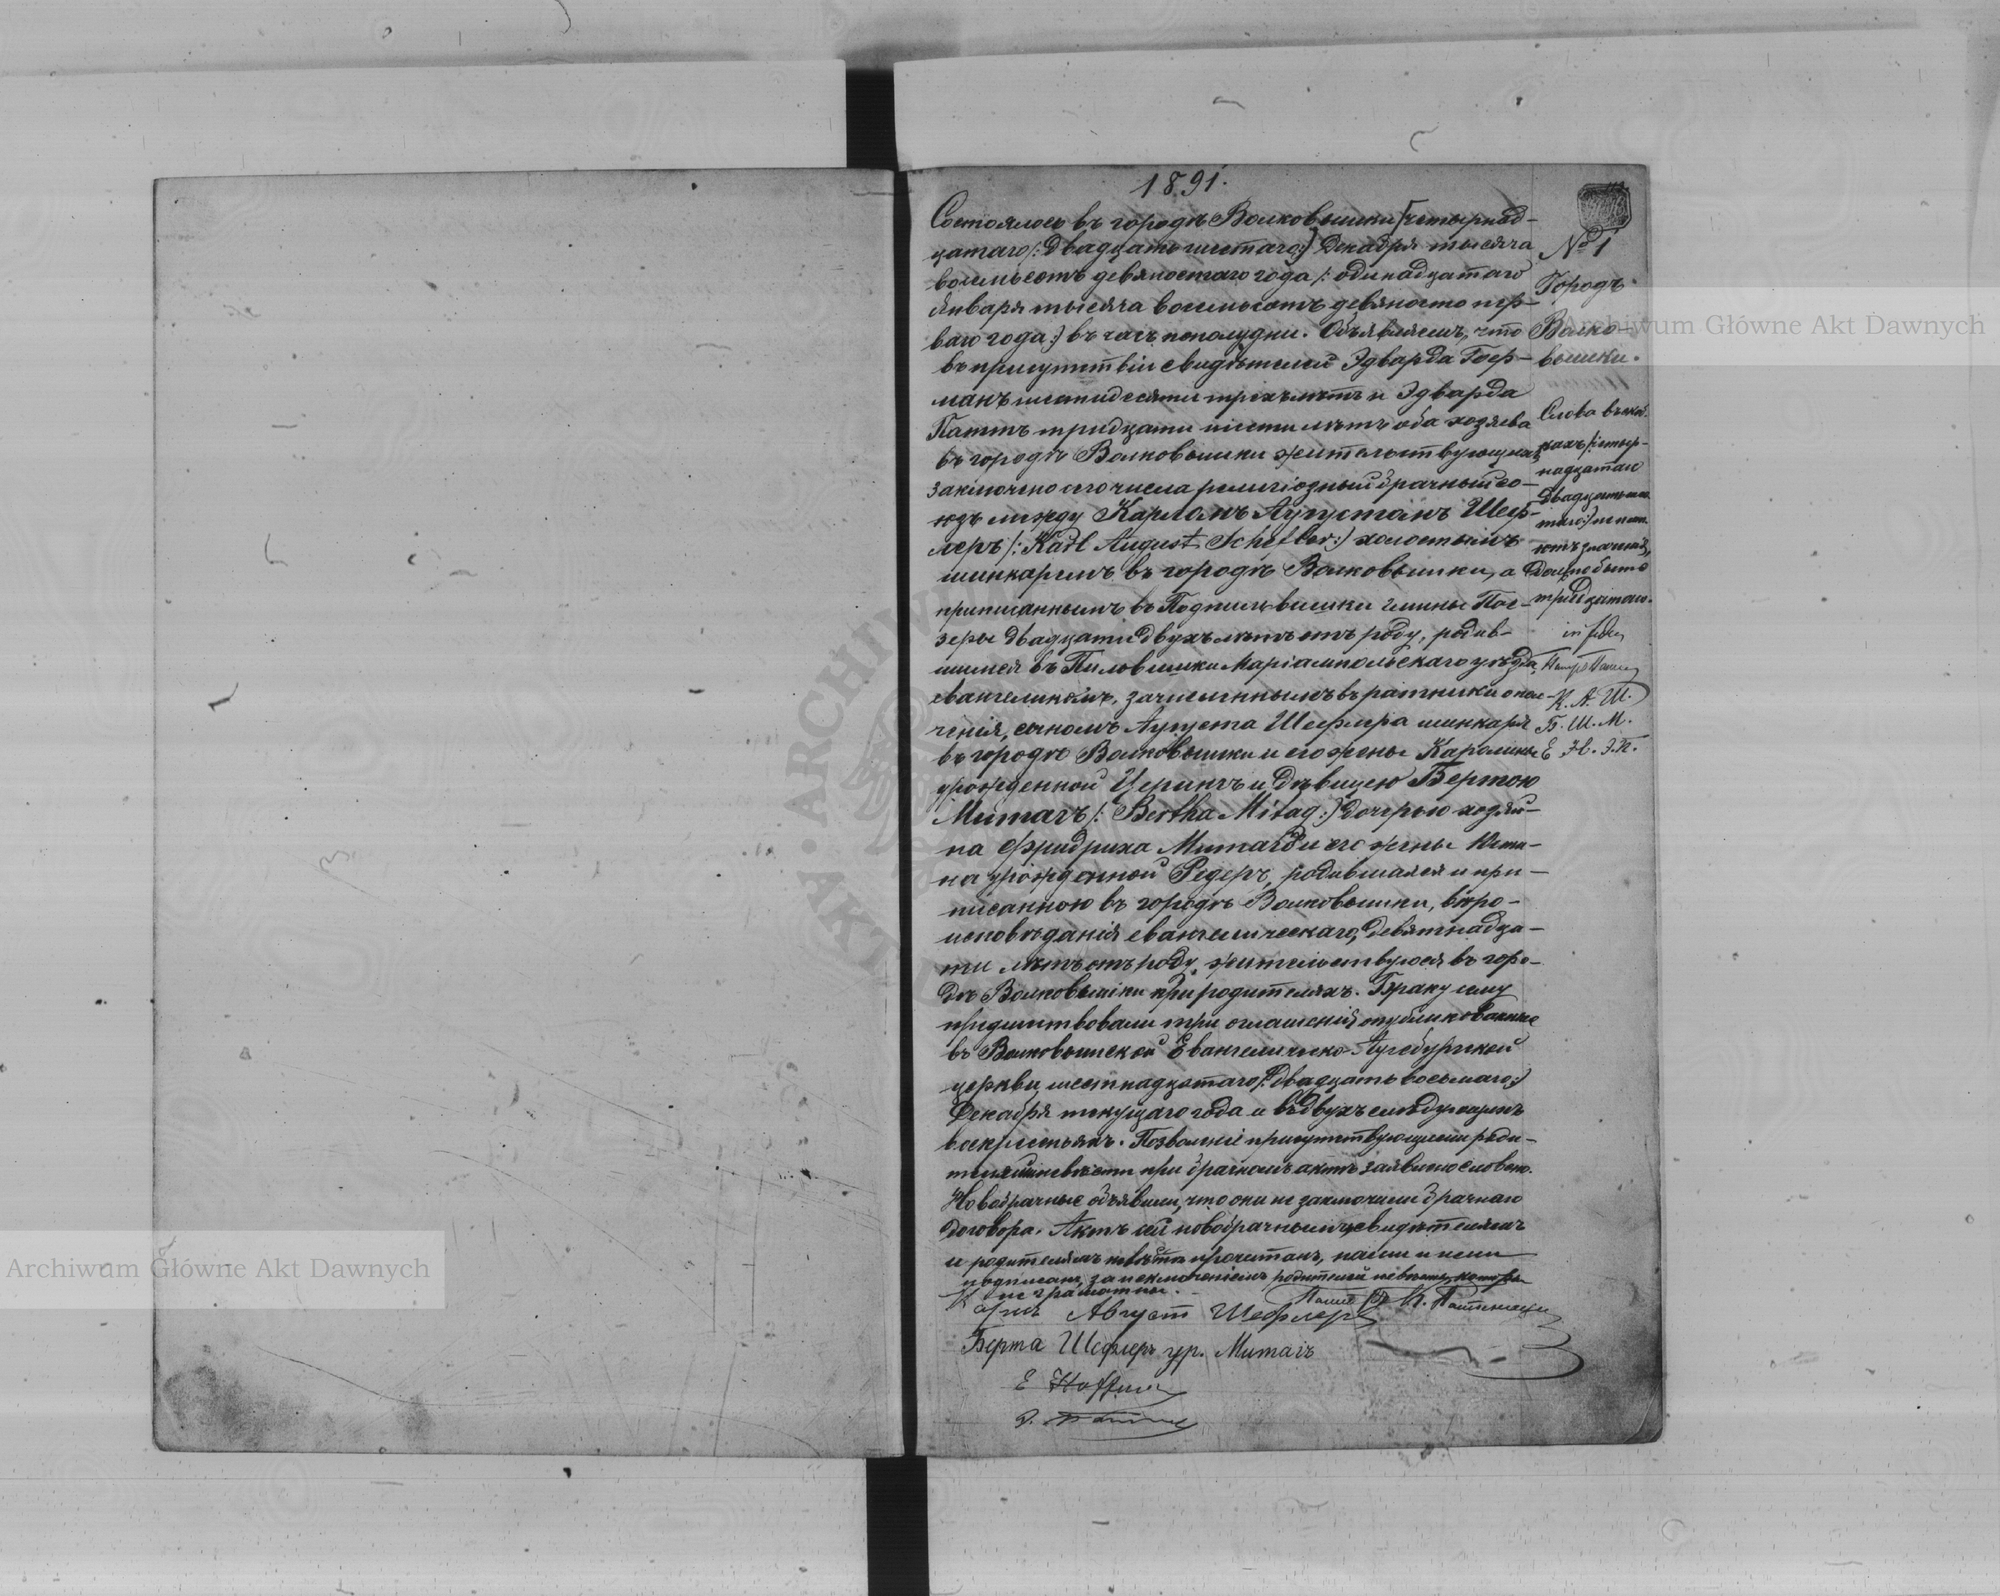 1891.
Состоялось въ городѣ Волковышки [четырнад-
цатаго /: двадцать шестаго:/] Декабря тысяча
восемьсотъ девяностаго года /: одинадцатаго
Января тысяча восемьсотъ девяносто пер-
ваго года:/ въ часъ пополудни. Объявляемъ, что
въ присутствіи свидѣтелей Эдварда Гоф-
манъ шестидесяти трехъ лѣтъ и Эдварда
Паттъ тридцати шести лѣтъ оба хозяева
въ городѣ Волковышки жительствующихъ
заключено сего числа религіозный брачный со-
юзъ между Карломъ Аугустомъ Шеф-
леръ /: Karl August Schefler:/ холостымъ
шинкаремъ въ городѣ Волковышки, а
приписаннымъ въ Подпильвишки гмины Пое-
зеры двадцати двухъ лѣтъ отъ роду, родив-
шимся въ Пильвишки Маріампольскаго уѣзда,
евангеликомъ, зачисленнымъ въ ратники опол-
ченія, сыномъ Аугуста Шефлера шинкаря
въ городѣ Волковышки и его жены Каролины
урожденной Церикъ и дѣвицею Бертою
Митагъ /: Bertha Mitag:/ дочерью хозяи-
на Фридриха Митагъ и его жены Юсти-
на урожденной Редеръ, родившаяся и при-
писанною въ городѣ Волковышки, вѣро-
исповѣданія евангелическаго, девятнадца-
ти лѣтъ отъ роду, жительствующая въ горо-
дѣ Волковышки при родителяхъ. Браку сему
предшествовали три оглашенія опубликованные
въ Волковышской Евангелическо-Аугсбургской
церкви, шестнадцатаго /: двадцать восьмаго:/
Декабря текущаго года и въ двухъ слѣдующихъ
воскресеньяхъ. Позволеніе присутствующими роди-
телями невѣсты при брачномъ актѣ заявлено словесно.
Новобрачные объявили, что они не заключили брачнаго
договора. Актъ сей новобрачнымъ, свидѣтелямъ
и родителямъ невѣсты прочитанъ, нами и ними
подписанъ, за исключеніемъ родителей невѣсты, которые
не грамотны.
Карлъ Августъ Шефлеръ
Берта Шефлеръ ур. Митагъ
E Hoffman
№ 1
Городъ
Волко-
вышки.
Слова въ скоб-
кахъ /: четыр-
надцатаго
двадцать шес-
таго:/ не имѣ-
ютъ значенія,
должно быть
тридцатаго.
in fidem
К. А. Ш.
Б. Ш. М.
E H. Э. П.
Archiwum Główne Akt Dawnych
Archiwum Główne Akt Dawnych